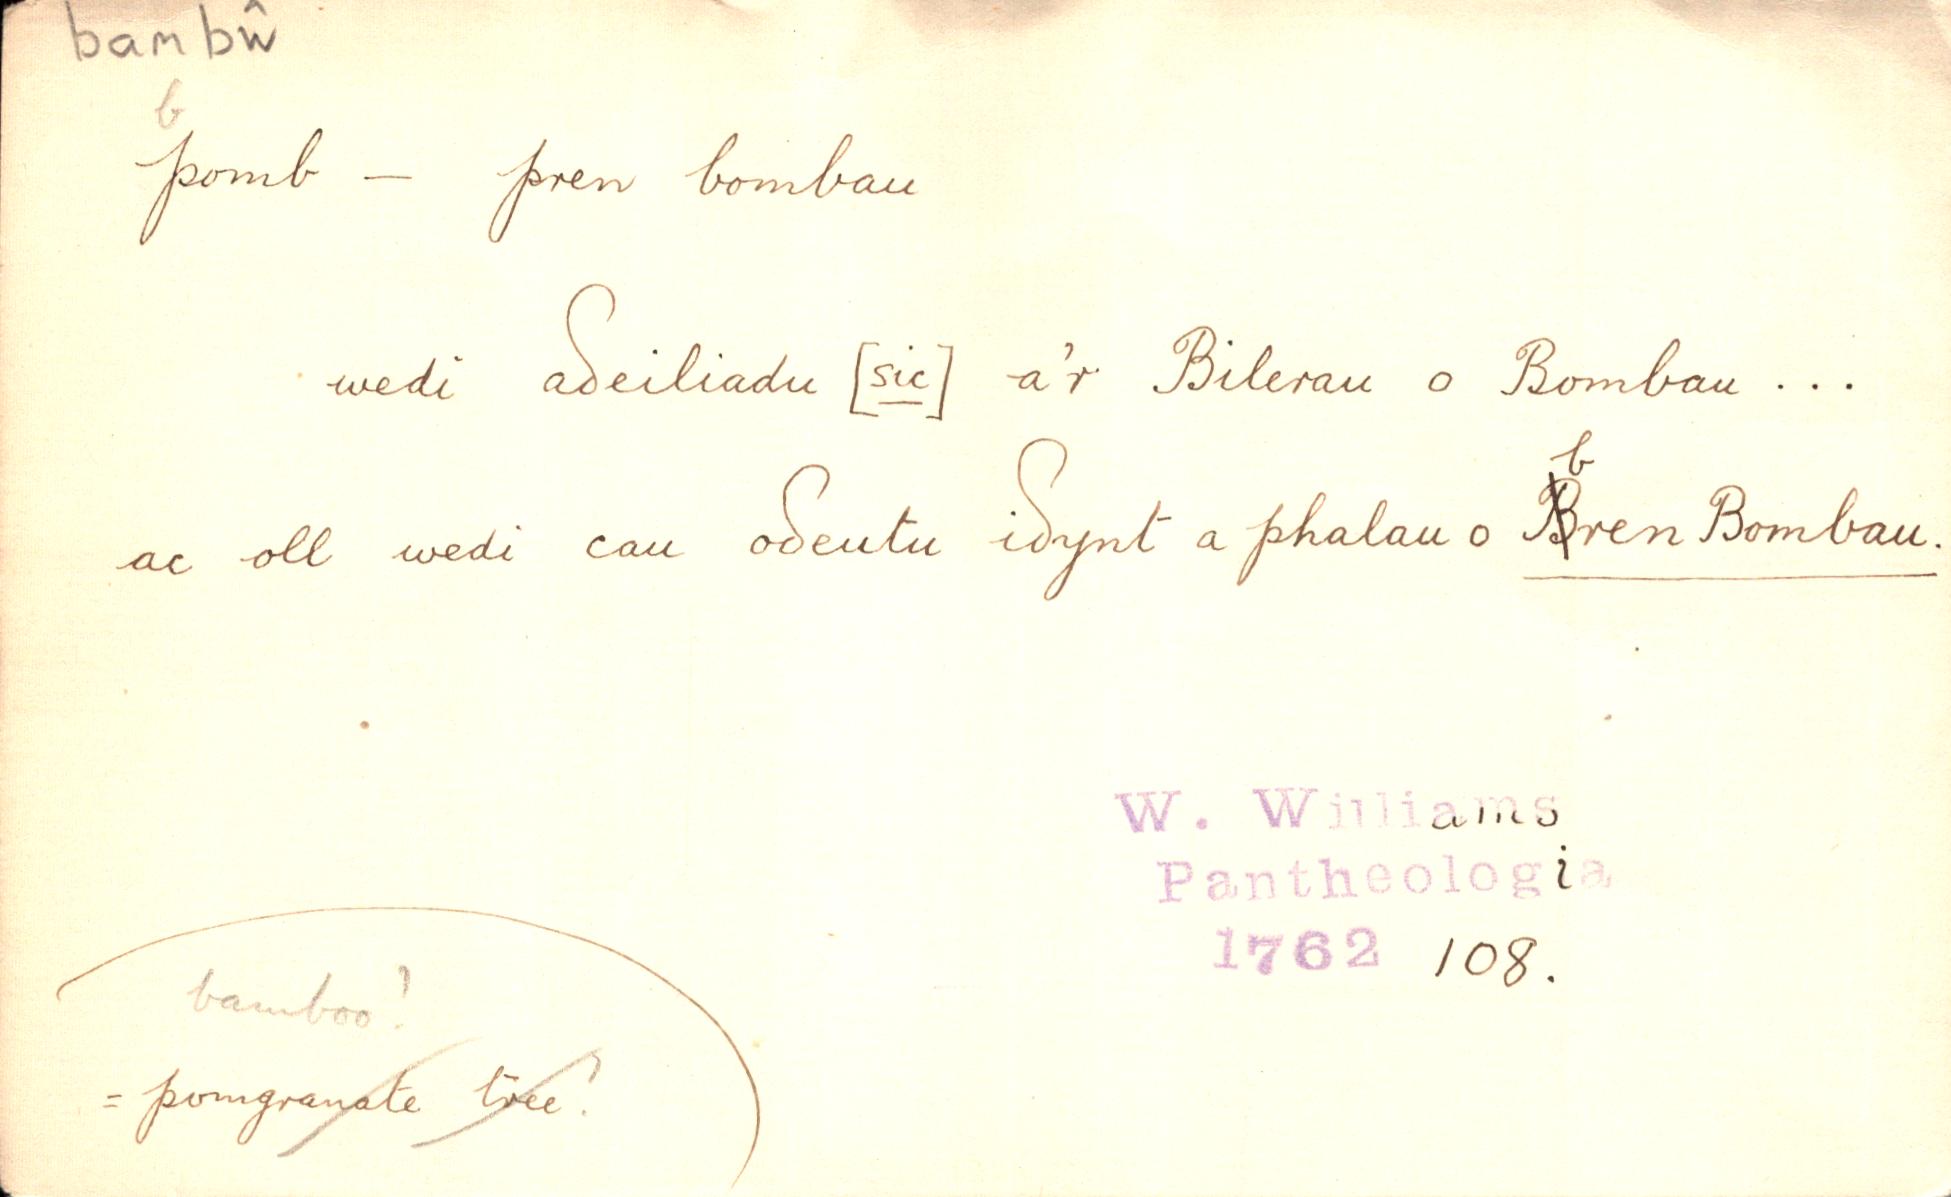 bambŵ
b
pomb — pren bombau
wedi aδeiliadu [sic] a'r Bilerau o Bombau ...
b
ac oll wedi cau oδeutu iδynt a phalau o Bren Bombau.
W. Williams
Pantheologia
1762 108.
bamboo?
= pomgranate tree?